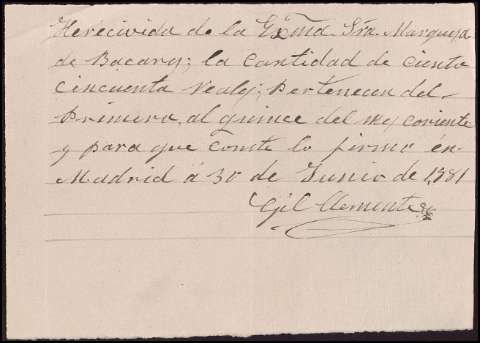 Herecivida de la Exma Sra Marquesa
de Bacary; la cantidad de ciento
cincuenta reales; pertenecen del
Primero, al quince del mes coriente
y para que conste lo firmo en
Madrid á 30 de Junio de 1881
Gil Clemente